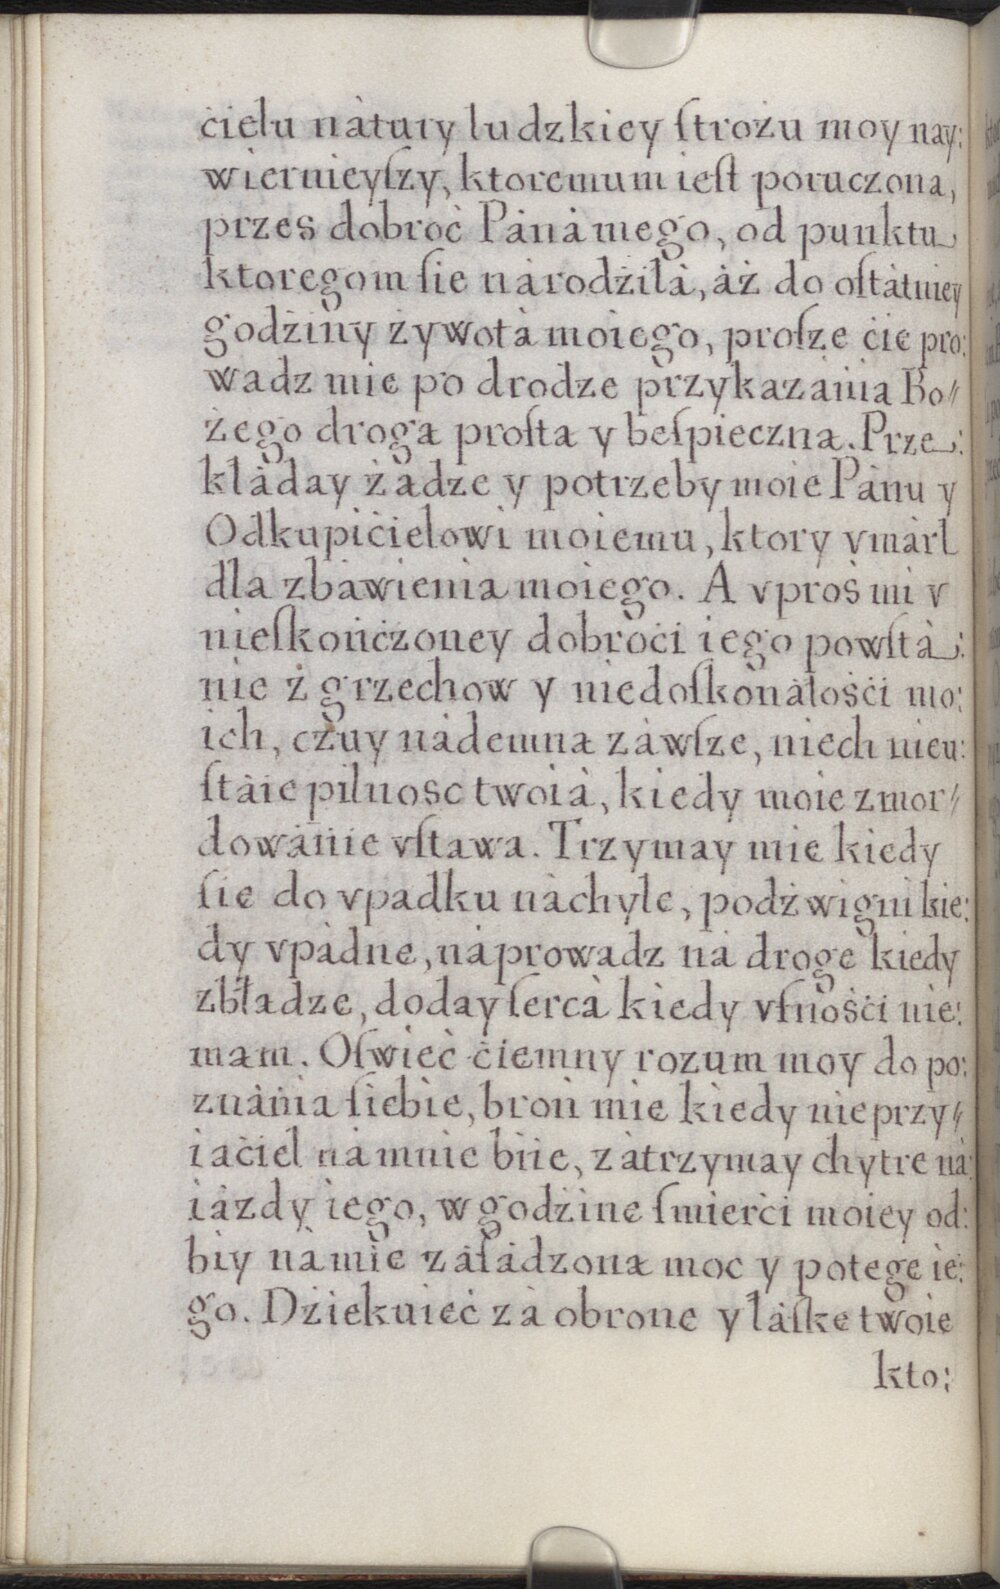 ċielu nàtury ludzkiey ſtrożu moy nay:
wiernieyſzy, ktoremum ieſt poruczona,
przes dobroċ Pànà mego, od punktu
ktoregom ſie nàrodżiłà, àż do oſtàtniey
godżiny żywotà moiego, proſze ċie pro:
wadz mie po drodze przykazańia Bo//
żego drogą proſtą y beſpieczną. Prze:
kłàday żądze y potrzeby moie Pànu y
Odkupiċielowi moiemu, ktory vmàrł
dla zbàwienia moiego. A vproś mi v
nieſkońċzoney dobroċi iego powſtà:
nie ż grzechow y niedoſkonàłośċi mo:
ich, czuy nàdemną zàwſze, niech nieu:
ſtàie pilność twoià, kiedy moie zmor//
dowànie vſtawa. Trzymay mie kiedy
ſie do vpadku nàchyle, podżwigni kie:
dy vpàdne, nàprowadz nà droge kiedy
zbłądze, doday ſercà kiedy vfnośċi nie:
mam. Oſwieċ ċiemny rozum moy do po:
znània ſiebie, broń mie kiedy nieprzy//
iaċiel nà mnie biie, zàtrzymay chytre nà:
iàzdy iego, w godżine ſmierċi moiey od:
biy nà mie zàſàdzoną moc y potege ie:
go. Dżiekuieċ zà obrone y łàſke twoie
kto: